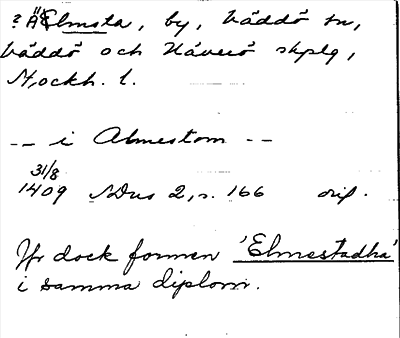 ? Älmsta, by, Väddö sn,
Väddö och Häverö skplg,
Stockh. l.
-- i Almestom --
31/8
1409 SDns 2, s. 166 orig.
Jfr dock formen 'Elmestadha'
i samma diplom.